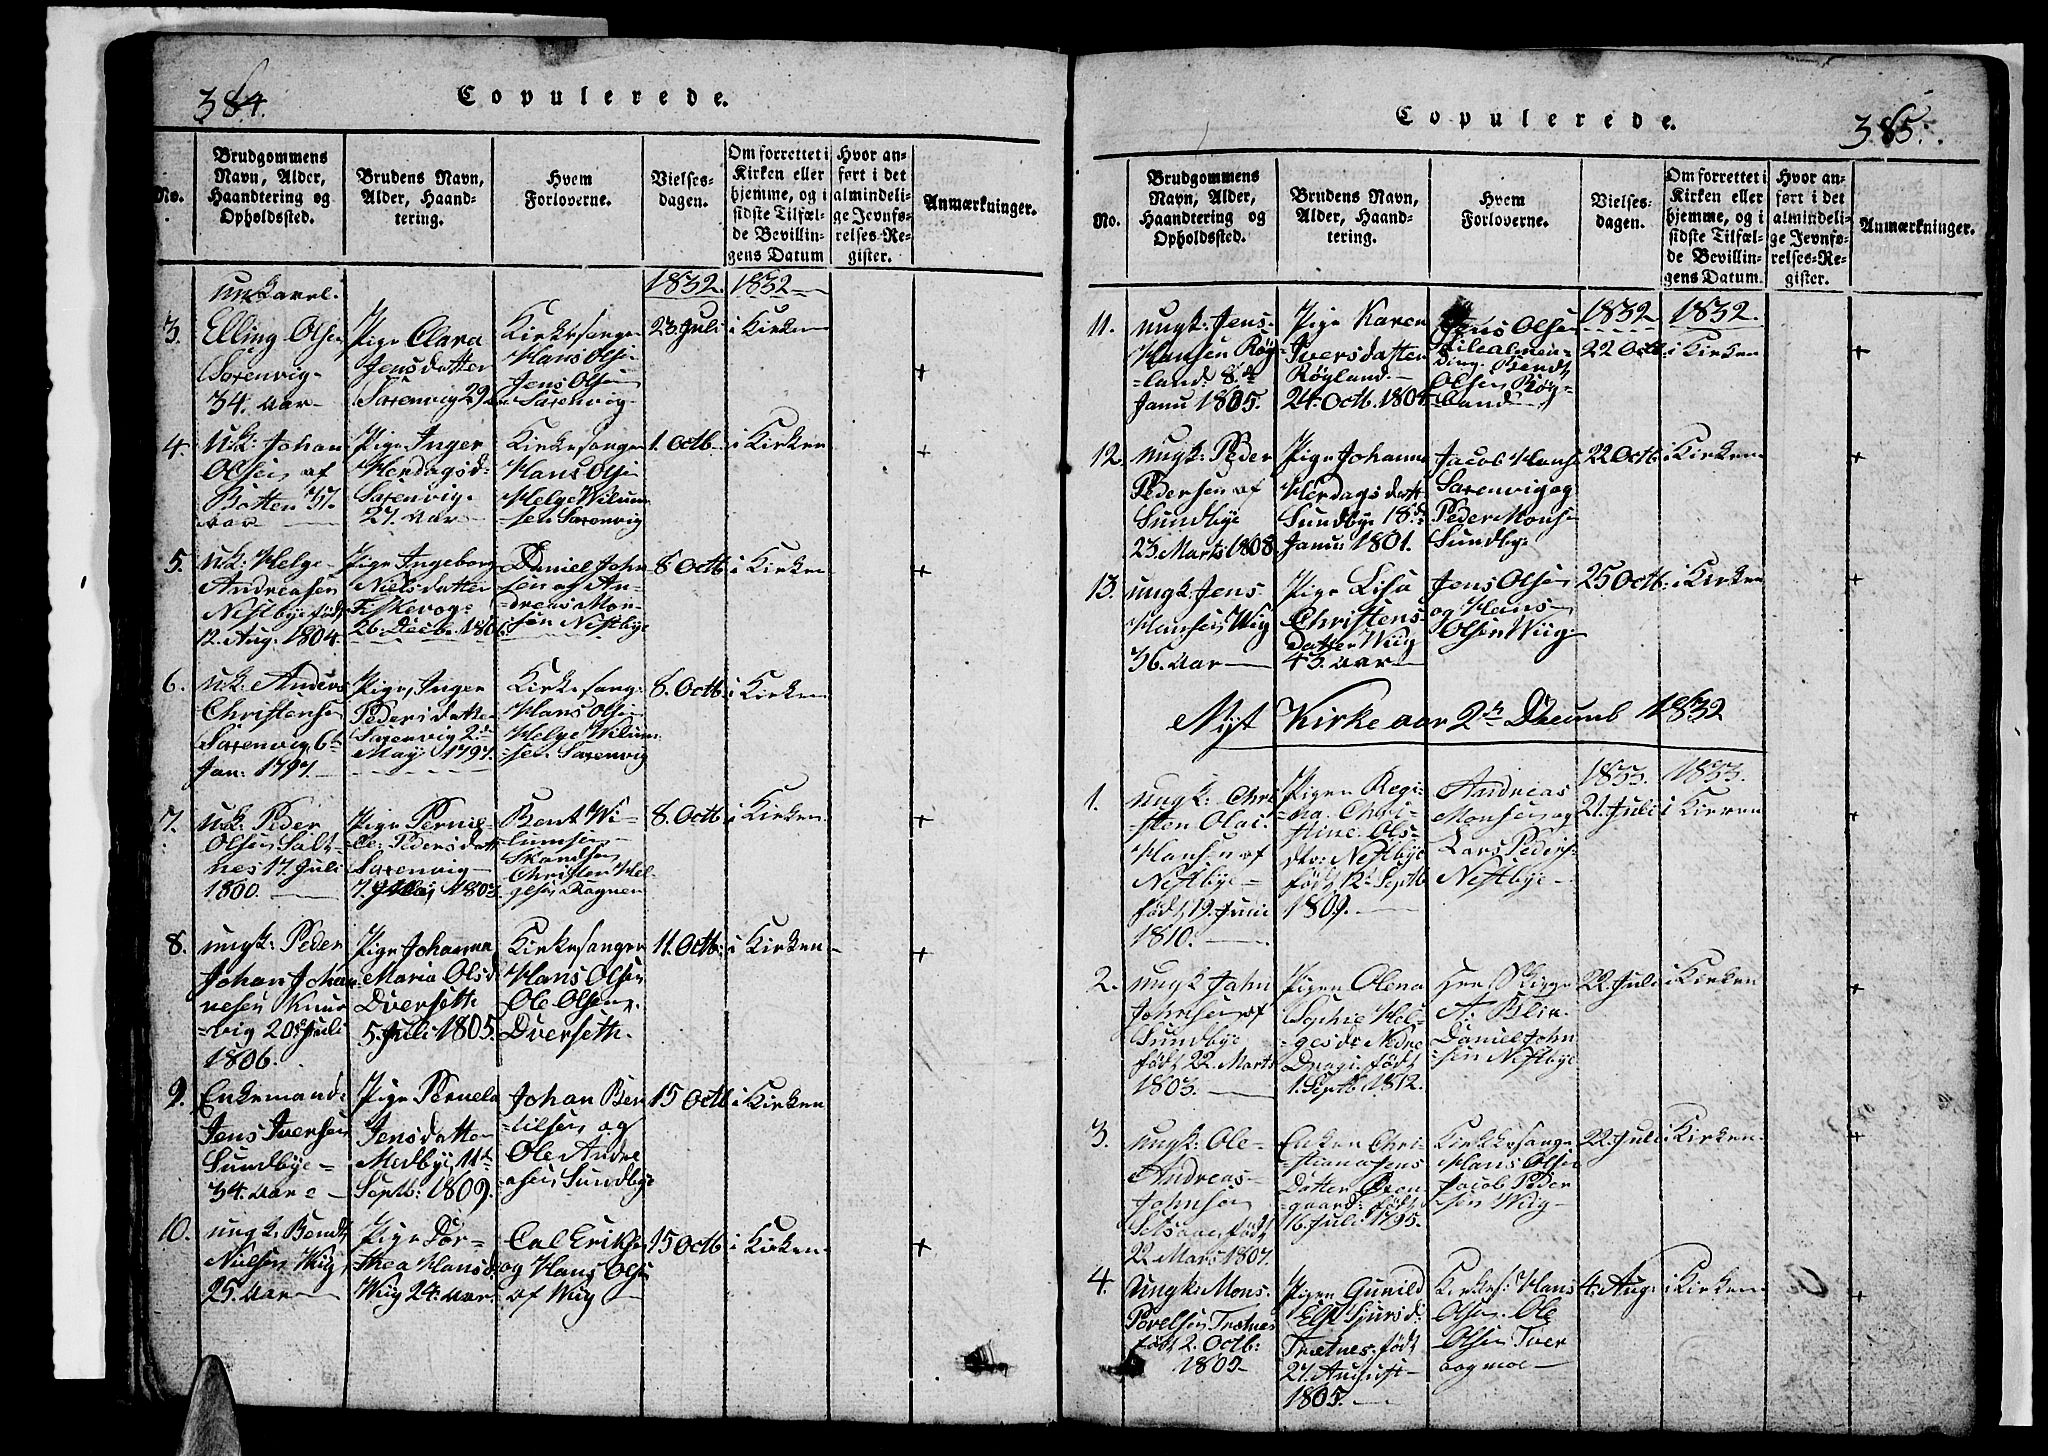 384.
Copulerede.
No.
Brudgommens
Navn, Alder,
Haandtering og
Opholdssted.
Brudens Navn,
Alder, Haand-
tering.
Hvem
Forloverne.
Vielses-
dagen.
Om forrettet i
Kirken eller
hjemme, og i
sidste Tilfæl-
de Bevillin-
gens Datum
Hvor an-
ført i det
almindeli-
ge Jevnfø-
relses-Re-
gister.
Anmærkninger.
1832. 1832
3.
Ungkarl.
Elling Olsen
Saxenvig
34. Aar
Pige Clara
Jensdatter
Saxenvig 29
Kirkesanger
Hans Olsen
Jens Olsen
Saxenvig
23. Juli
i Kirken
+
4.
U.k: Johan
Olsen af
Botten 31.
Aar
Pige Inger
Herdagsd:
Saxenvig
27. Aar
Kirkesanger
Hans Olsen
Helge Wilum
sen Saxenvig
1. Octb
i Kirken
+
5.
U.k: Helge
Andreasen
Nestbye født
12. Aug. 1804.
Pige Ingeborg
Nielsdatter
Fiskevog
26. Decbr.
Daniel John
sen og An-
dreas Mon-
sen Nestbye
8 Octb
i Kirken
+
6.
U.k: Anders
Christensen
Saxenvig 6te
Jan: 1797.
Pige Inger
Pedersdatter
Saxenvig 2d
May 1797.
Kirkesang:
Hans Olsen
Helge Wilum
sen Saxenvig
8. Octb:
i Kirken
7.
U.k: Peder
Olsen Salt-
nes 17. Juli
1800.
Pige Pernil-
le Pedersdatt
Saxenvig
7. 1803.
Bent Wi-
lumsen
Skandsen
Christen Hel-
gesen Kogner
8. Octb
i Kirken
+
8.
Ungk: Peder
Johan Johan
nesen Knar
vig 20 Juli
1806.
Pige Johanna
Maria Olsd.
Dverseth
5. Juli 1805.
Kirkesanger
Hans Olsen
Ole Olsen
Dverseth
11. Octb:
i Kirken
+
9.
Enkemand:
Jens Iversen
Sundbye
34. Aar
Pige Pernela
Jensdatter
Medbye 11te
Septb: 1809.
Johan Ber
tilsen og
Ole Andre
asen Sundbye
15 Octb
i Kirken
10.
Ungk. Bendt
Nielsen Wiig
25. Aar
Pige Dor-
thea Hansd.
Wiig 24. Aar.
Erikse
og Hans Olsen
af Wiig
15 Octb
i Kirken
+
385.
Copulerede.
No.
Brudgommens
Navn, Alder,
Haandtering og
Opholdssted.
Brudens Navn,
Alder, Haand-
tering.
Hvem
Forloverne.
Vielses-
dagen.
Om forrettet i
Kirken eller
hjemme, og i
sidste Tilfæl-
de Bevillin-
gens Datum.
Hvor an-
ført i det
almindeli-
ge Jevnfø-
relses-Re-
gister.
Anmærkninger.
1832 1832.
11.
Ungk: Jens
Hansen Røg
land. 8.de
Janu 1805.
Pige Karen
Iversdatter
Røgland
24. Octb. 1804
Jens Olsen
Lilealmen-
ding. Bendt
Olsen Røg-
land
22 Octb
i Kirken
+
12.
Ungk: Peder
Pedersen af
Sundbye
23 Marts 1808
Pige Johanna
Herdagsdatt
Sundbye 18de
Janu: 1801.
Jacob Hans
Saxenvig og
Peder Monse
Sundby
22 Octb.
i Kirken
+
13.
Ungk. Jens
Hansen Wiig
36. Aar
Pige Lisa
Christens
datter Wiig
43. Aar
Jens Olsen
og Hans
Olsen Wiig
25 Octb.
i Kirken
+
Nyt Kirkeaar 2n Decemb 1832
1833. 1833.
1.
Ungk: Chri
sten Olai
Hansen af
Nestbye
født 19. Juni
1810.
Pigen Regi-
na Chri-
stine Ols-
dtr: Nestbye
født 12. Septb
1809.
Andreas
Monsen og
Lars Peders
Nestbye
21. Juli
i Kirken
+
2.
Ungk John
Johnsen af
Sundbye
født 22. Marts
1803.
Pigen Olena
Sophie Hel-
gesdr Nedre
født
1. Septb. 1812.
Herr Skipp
A: Blix
Daniel John
sen Nestbye
22. Juli
i Kirken
+
3.
Ungk: Ole
Andreas
Johnsen
Setsaae født
22 Mars 1807.
Enken Chri-
stiana Jens
datter
gaard: født
16. Juli 1795.
Kirkesanger
Hans Olsen
Jacob Peder
sen Wiig
22. Juli
i Kirken
+
4.
Ungk: Mons
Povelsen Trætnes
født 2. Octb:
1809
Pigen Gunild
Else Sjursd:
Trætnes født
27. August
1805.
Kirkes: Hans
Olsen Ole
Olsen Tver
aagmoe
4. Aug:
i Kirken
+